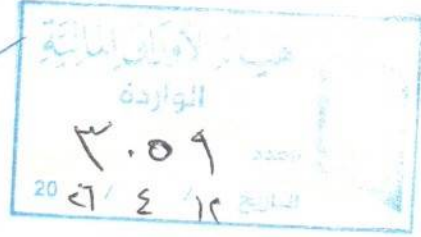 هيئة الأوراق المالية
الواردة
العدد ٣٠٥٩
التاريخ ١٢ / ٤ / 20٢٦